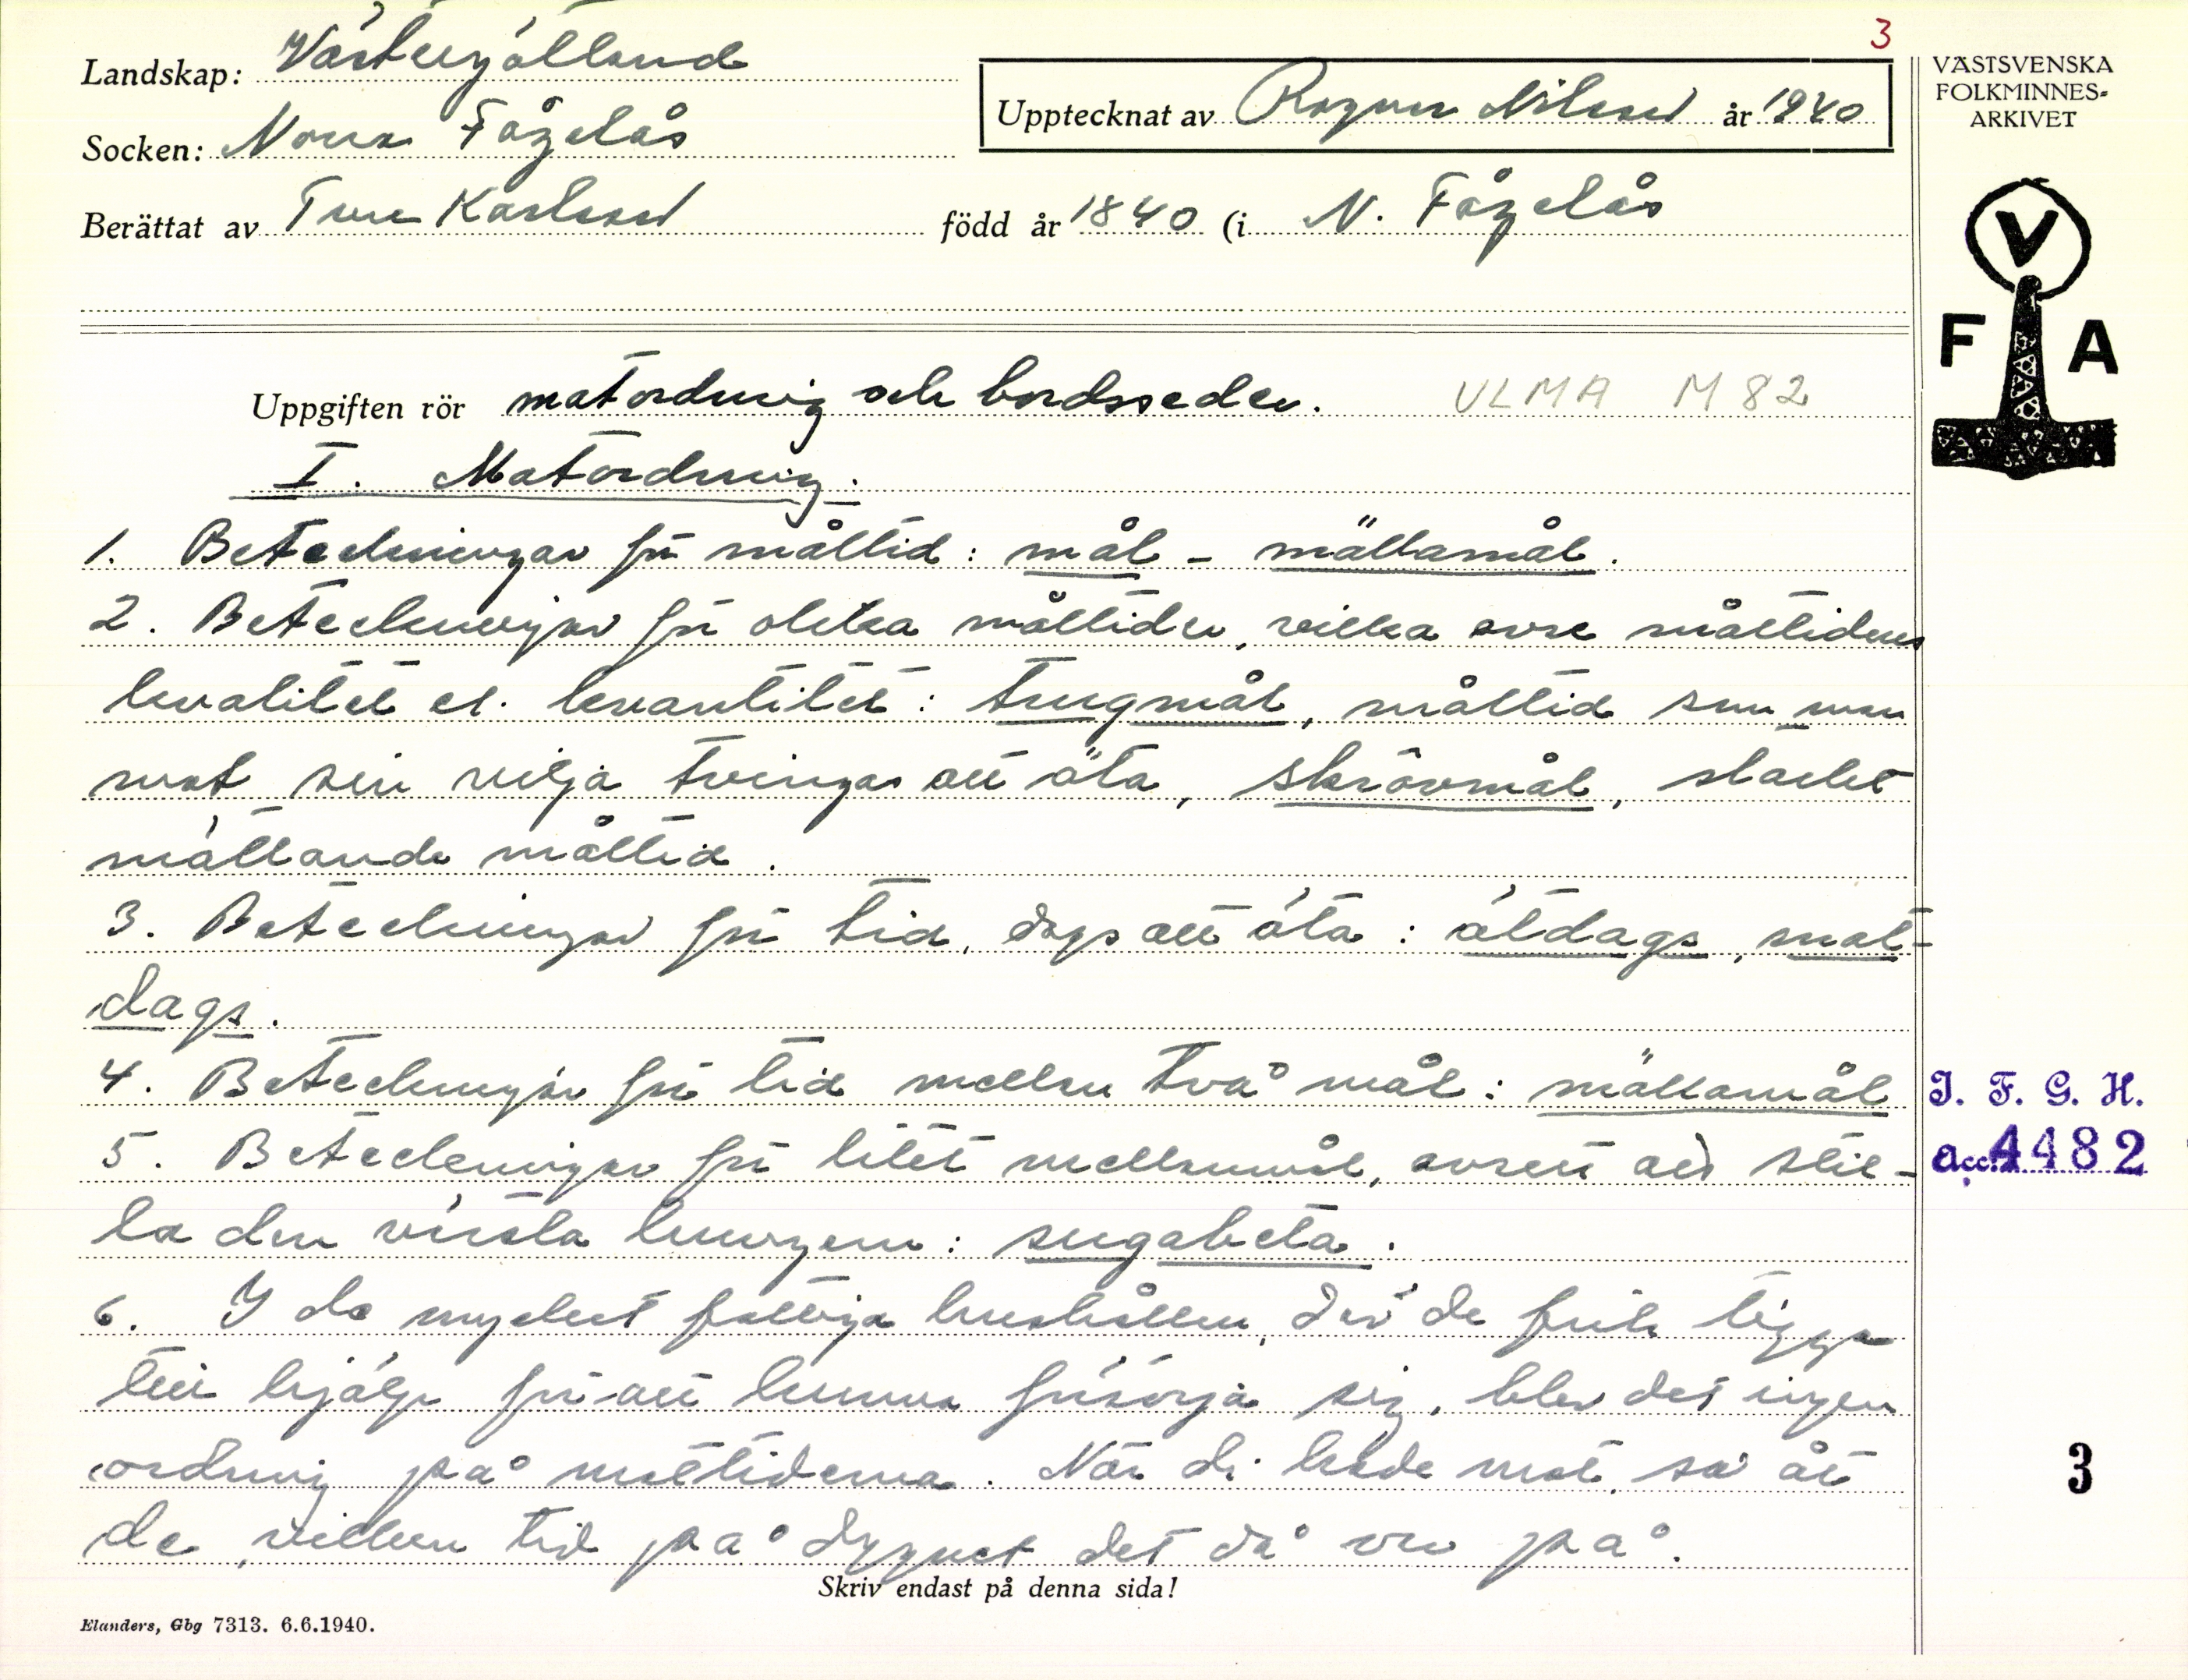 3
Landskap: Västergötland
Upptecknat av Ragnar Nilsson år 1940
Socken: Norra Fågelås
Berättat av Ture Karlsson född år 1840 (i N. Fågelås
VÄSTSVENSKA
FOLKMINNES-
ARKIVET
V
F A
Uppgiften rör matordning och bordsseder. ULMA M 82
I. Matordning.
1. Beteckningar för måltid: mål – mällamål.
2. Beteckningar för olika måltider, vilka avse måltidens
kvalitet el. kvantitet: trugmål, måltid som man
mot sin vilja tvingas att äta, skrovmål, starkt
mättande måltid.
3. Beteckningar för tid, dags att äta: ätdags, mat-
dags.
4. Beteckningar för tid mellan två mål: mällamål
5. Beteckningar för litet mellanmål, avsett att stil-
la den värsta hungern: sugabeta.
6. I de mycket fattiga hushållen, där de fick tigga
till hjälp för att kunna försörja sig, blev det ingen
ordning på måltiderna. När de hade mat, så åt
de, vilken tid på dygnet det då var på.
Skriv endast på denna sida!
Elanders, Gbg 7313. 6.6.1940.
I. F. G. H.
Acc. 4482
3